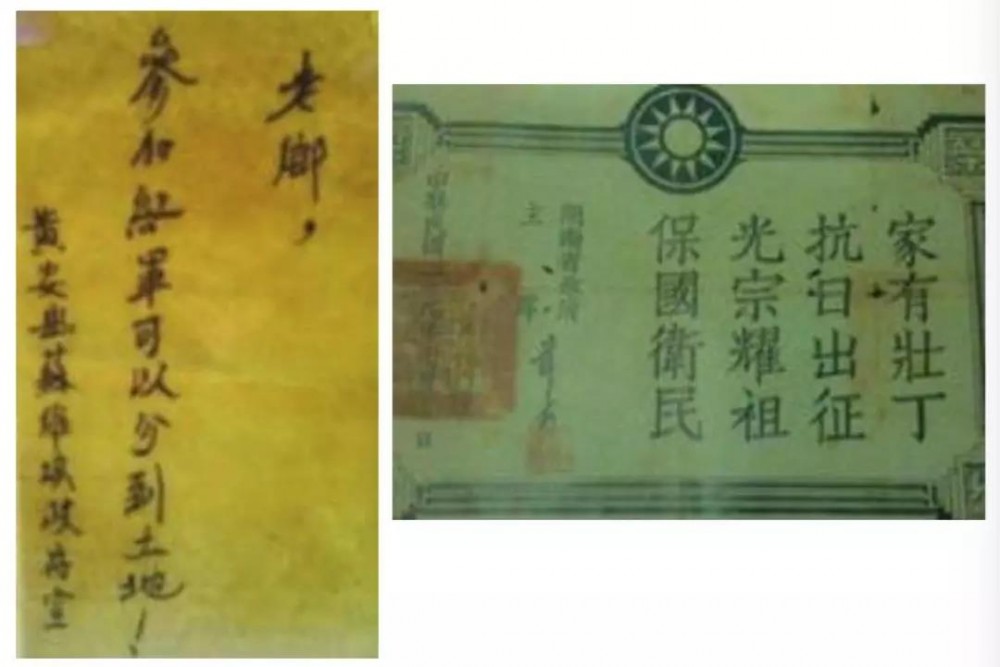 老鄉，
參加紅軍可以分到土地！
黃安縣蘇維埃政府宣
家有壯丁
抗日出征
光宗耀祖
保國衛民
湖南省政府
主席
中華民國 日